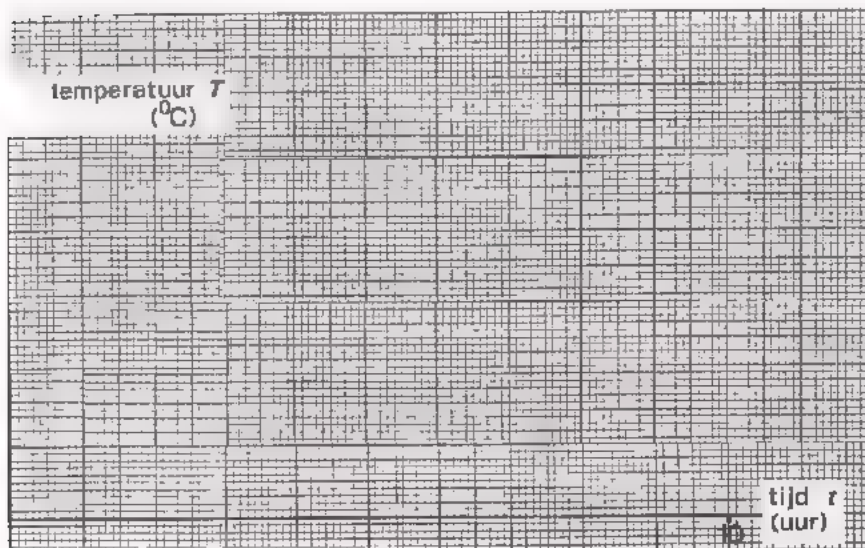 temperatuur T
(°C)
tijd t
(uur)